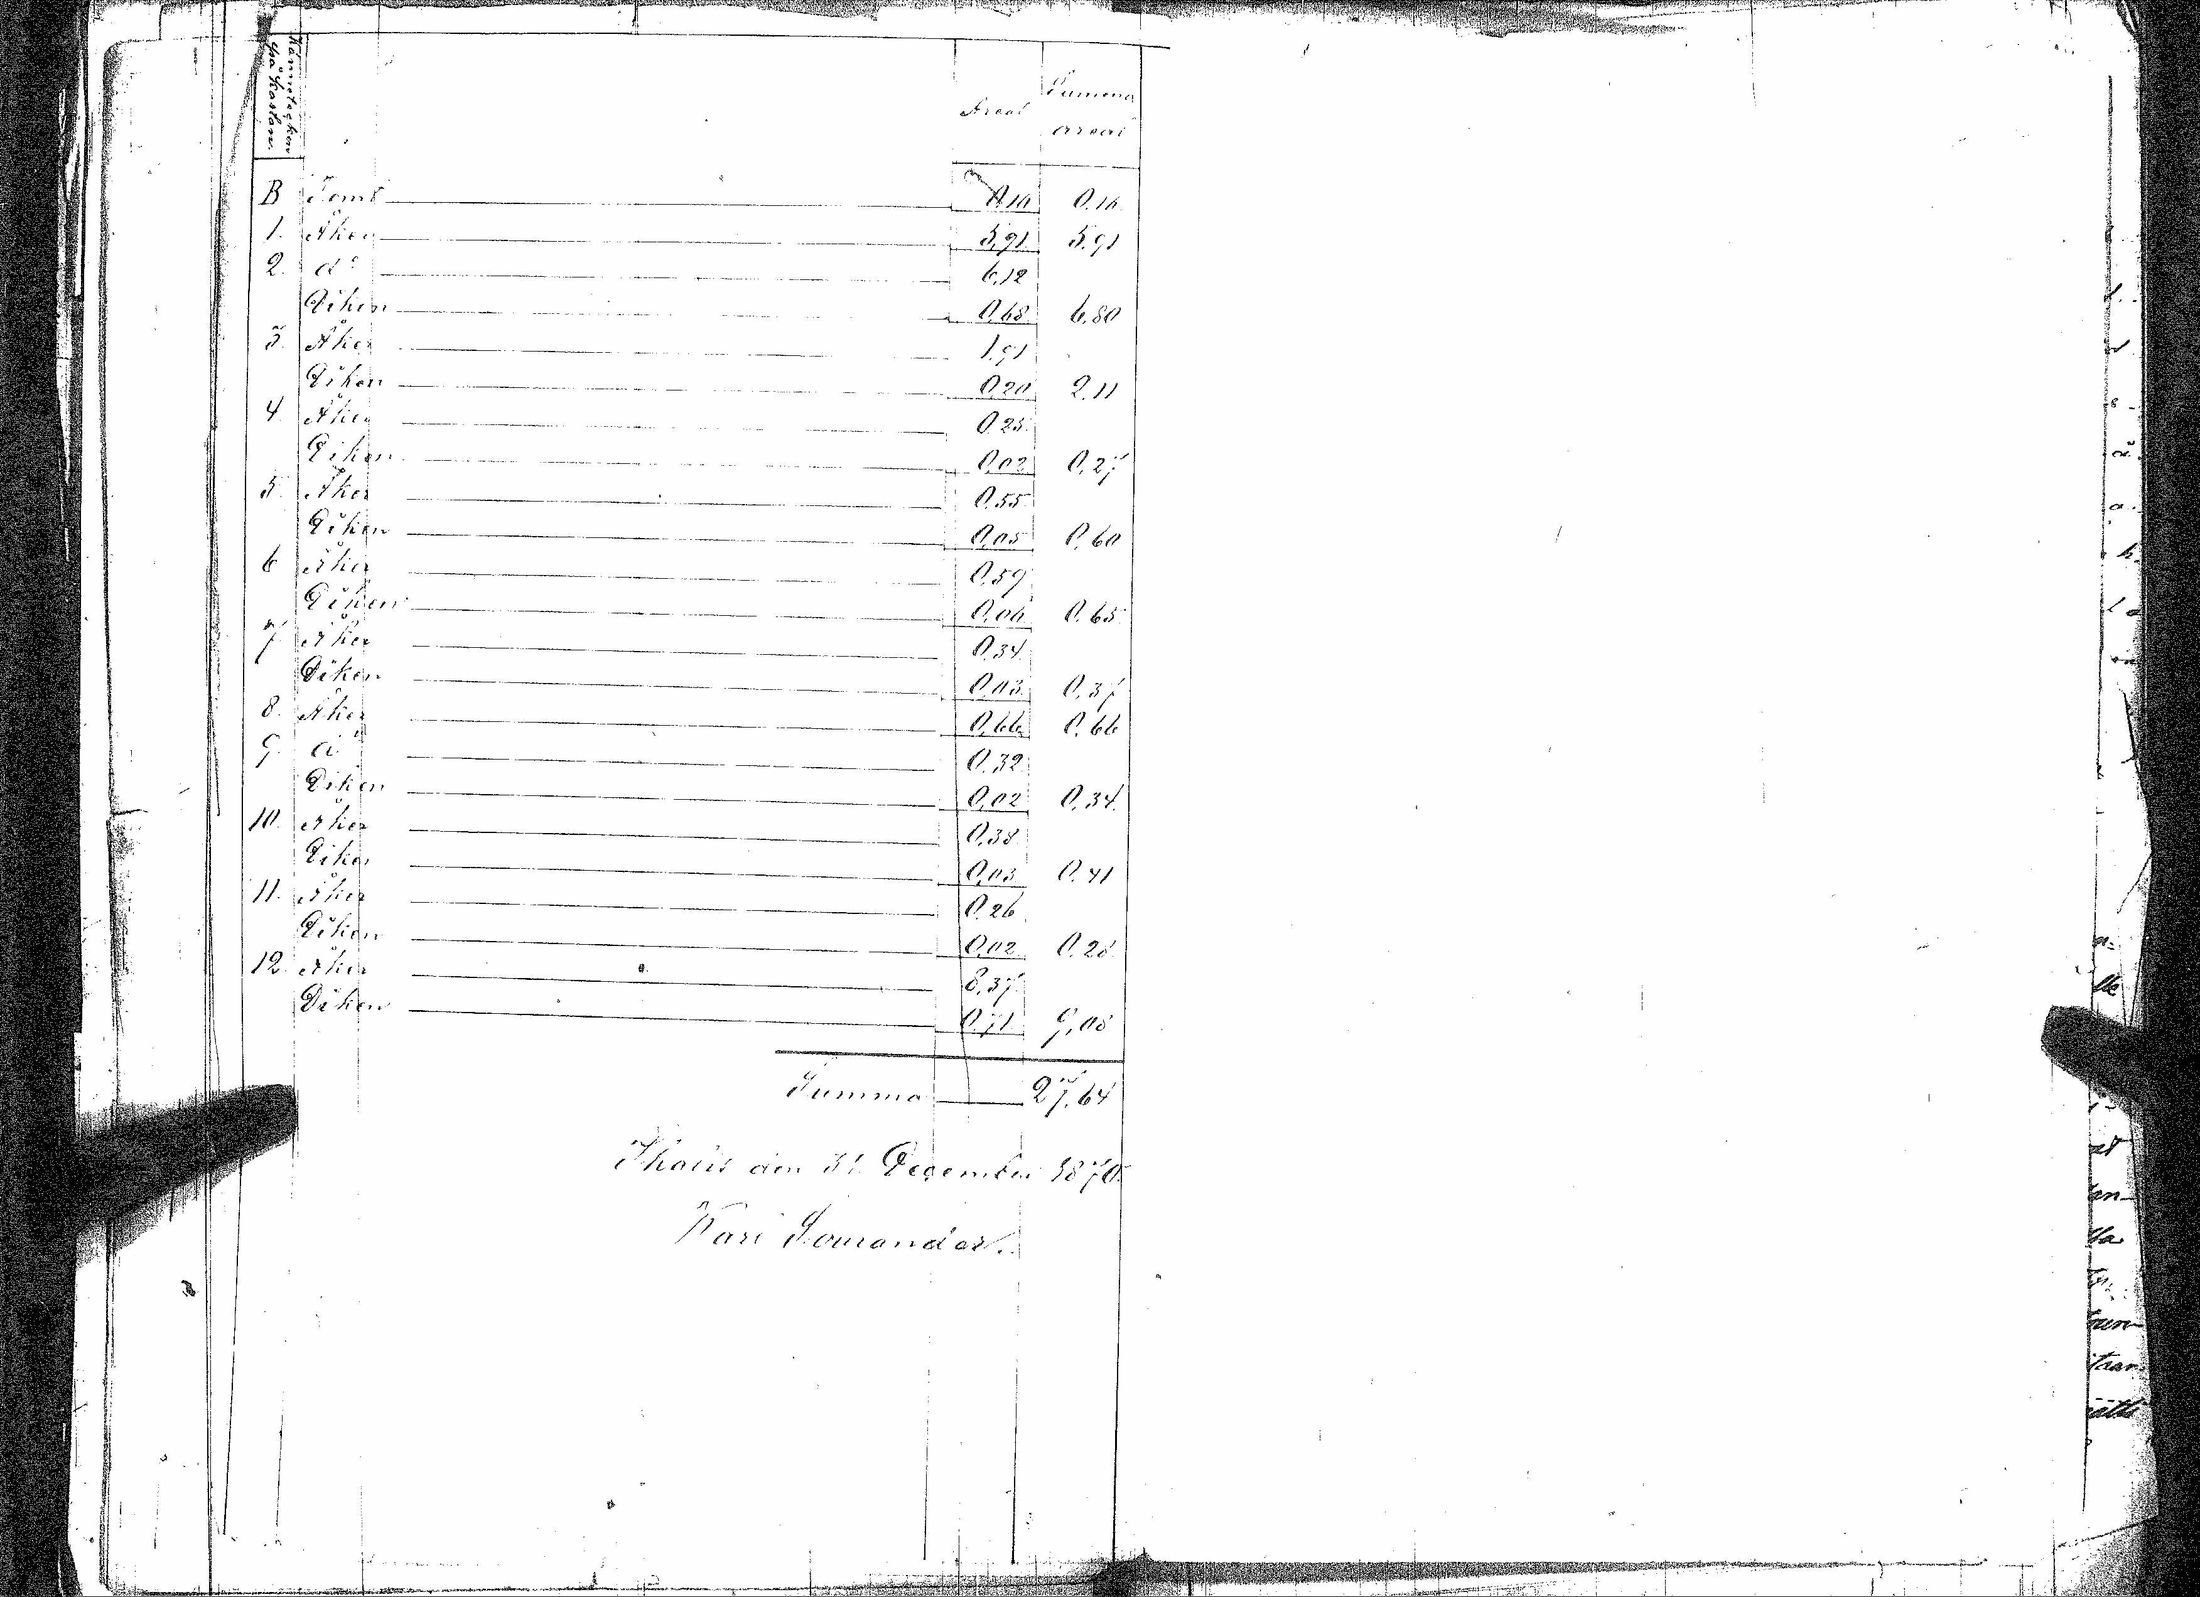 Kännetecken på kartan.
Areal
Summa areal
B Tomt 0,16 0,16
1. Åker 5,91 5,91
2. do 6,12
Diken 0,68 6,80
3. Åker 1,91
Diken 0,20 2,11
4. Åker 0,25
Diken 0,02 0,27
5. Åker 0,55
Diken 0,05 0,60
6 Åker 0,59
Diken 0,06 0,65
7 Åker 0,34
Diken 0,03 0,37
8. Åker 0,66 0,66
9. do 0,32
Diken 0,02 0,34
10. Åker 0,38
Diken 0,03 0,41
11. Åker 0,26
Diken 0,02 0,28
12. Åker 8,37
Diken 0,71 9,08
Summa 27,64
Ikalis den 31 December 1870.
Sourander.